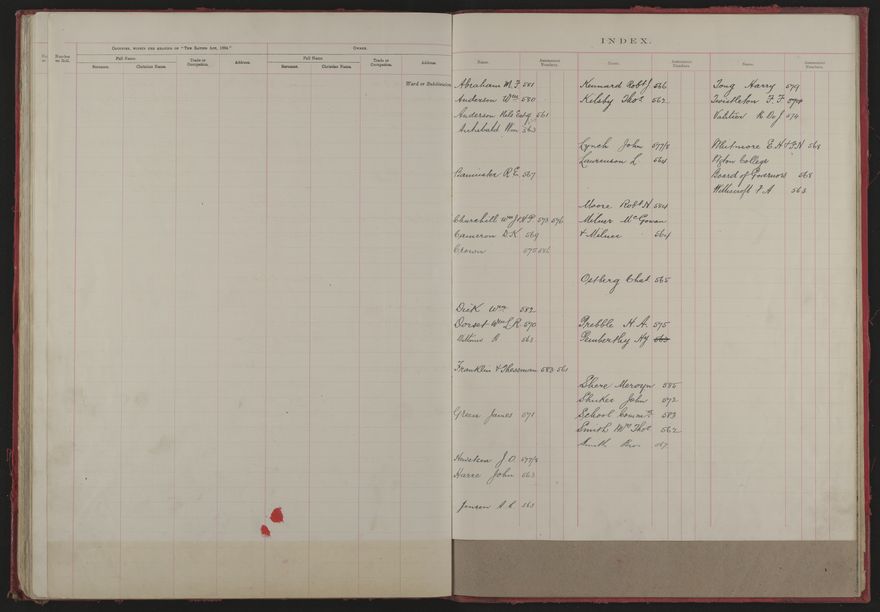 Number on Roll.
Occupier, within the meaning of "The Rating Act, 1894."
Owner.
Full Name.
Trade or Occupation.
Address.
Full Name.
Trade or Occupation.
Address.
Surname. Christian Name.
Surname. Christian Name.
Ward or Subdivision
INDEX.
Name. Assessment Numbers.
Name. Assessment Numbers.
Name. Assessment Numbers.
Abraham M. F 581
Anderson Wm 580
Anderson 561
Archibald Wm 563
R E 567
Churchill Wm J & H P 573 576
Cameron D. K 569
Crown 575
Dick Wm 582
Dorset Wm L R 570
563
Franklin & Thessman 583 561
Green James 571
J O 577/8
Harre John 563
Jansen 563
Kennard Robt J 566
Kelsby Thos 562
Lynch John 577/8
Laurenson L 564
Moore Robt N 584
Milner McGowan
& Milner 564
Ostberg Chat 565
Prebble H. A. 575
Pemberthy Hy 563
Shere Mervyn 585
Shuker John 572
School Commrs 583
Smith Wm Thos 562
Smith Bro 567
Tong Harry 579
Twistleton F. F. 574
574
Whitmore E. H & P. N 568
College
Board of Governors 568
563